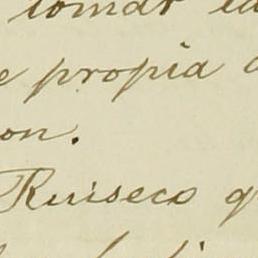 tomar la
e propia
on.
Ruiseco q